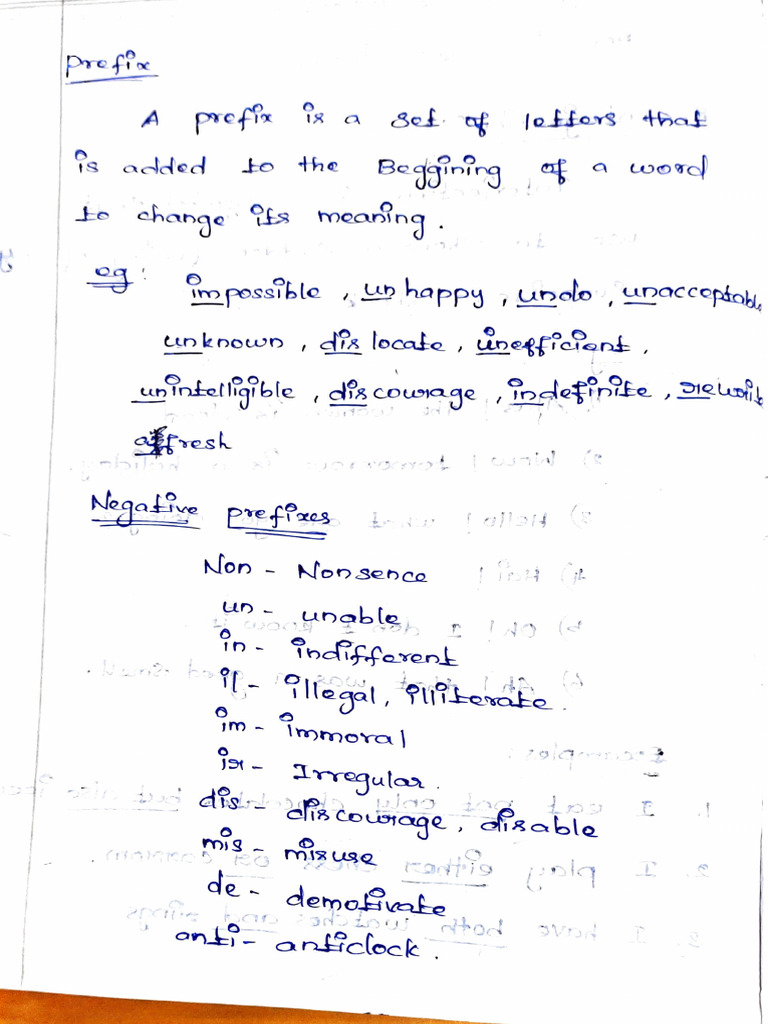 Prefix
A prefix is a set of letters that
is added to the Beggining of a word
to change its meaning.
eg: impossible, unhappy, undo, unacceptable
unknown, dislocate, inefficient,
unintelligible, discourage, indefinite, rewrite
afresh
Negative prefixes
Non - Nonsence
un - unable
in - indifferent
il - illegal, illiterate.
im - immoral
ir - Irregular.
dis - discourage, disable
mis - misuse
de - demotivate
anti - anticlock.